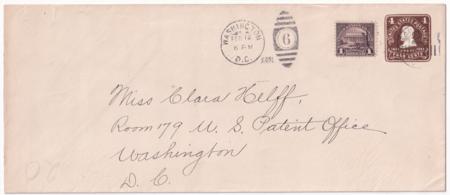 WASHINGTON
FEB 12
6 PM
D.C.
6
4
4
Miss Clara Helff,
Room 179 U. S. Patent Office
Washington
D. C.